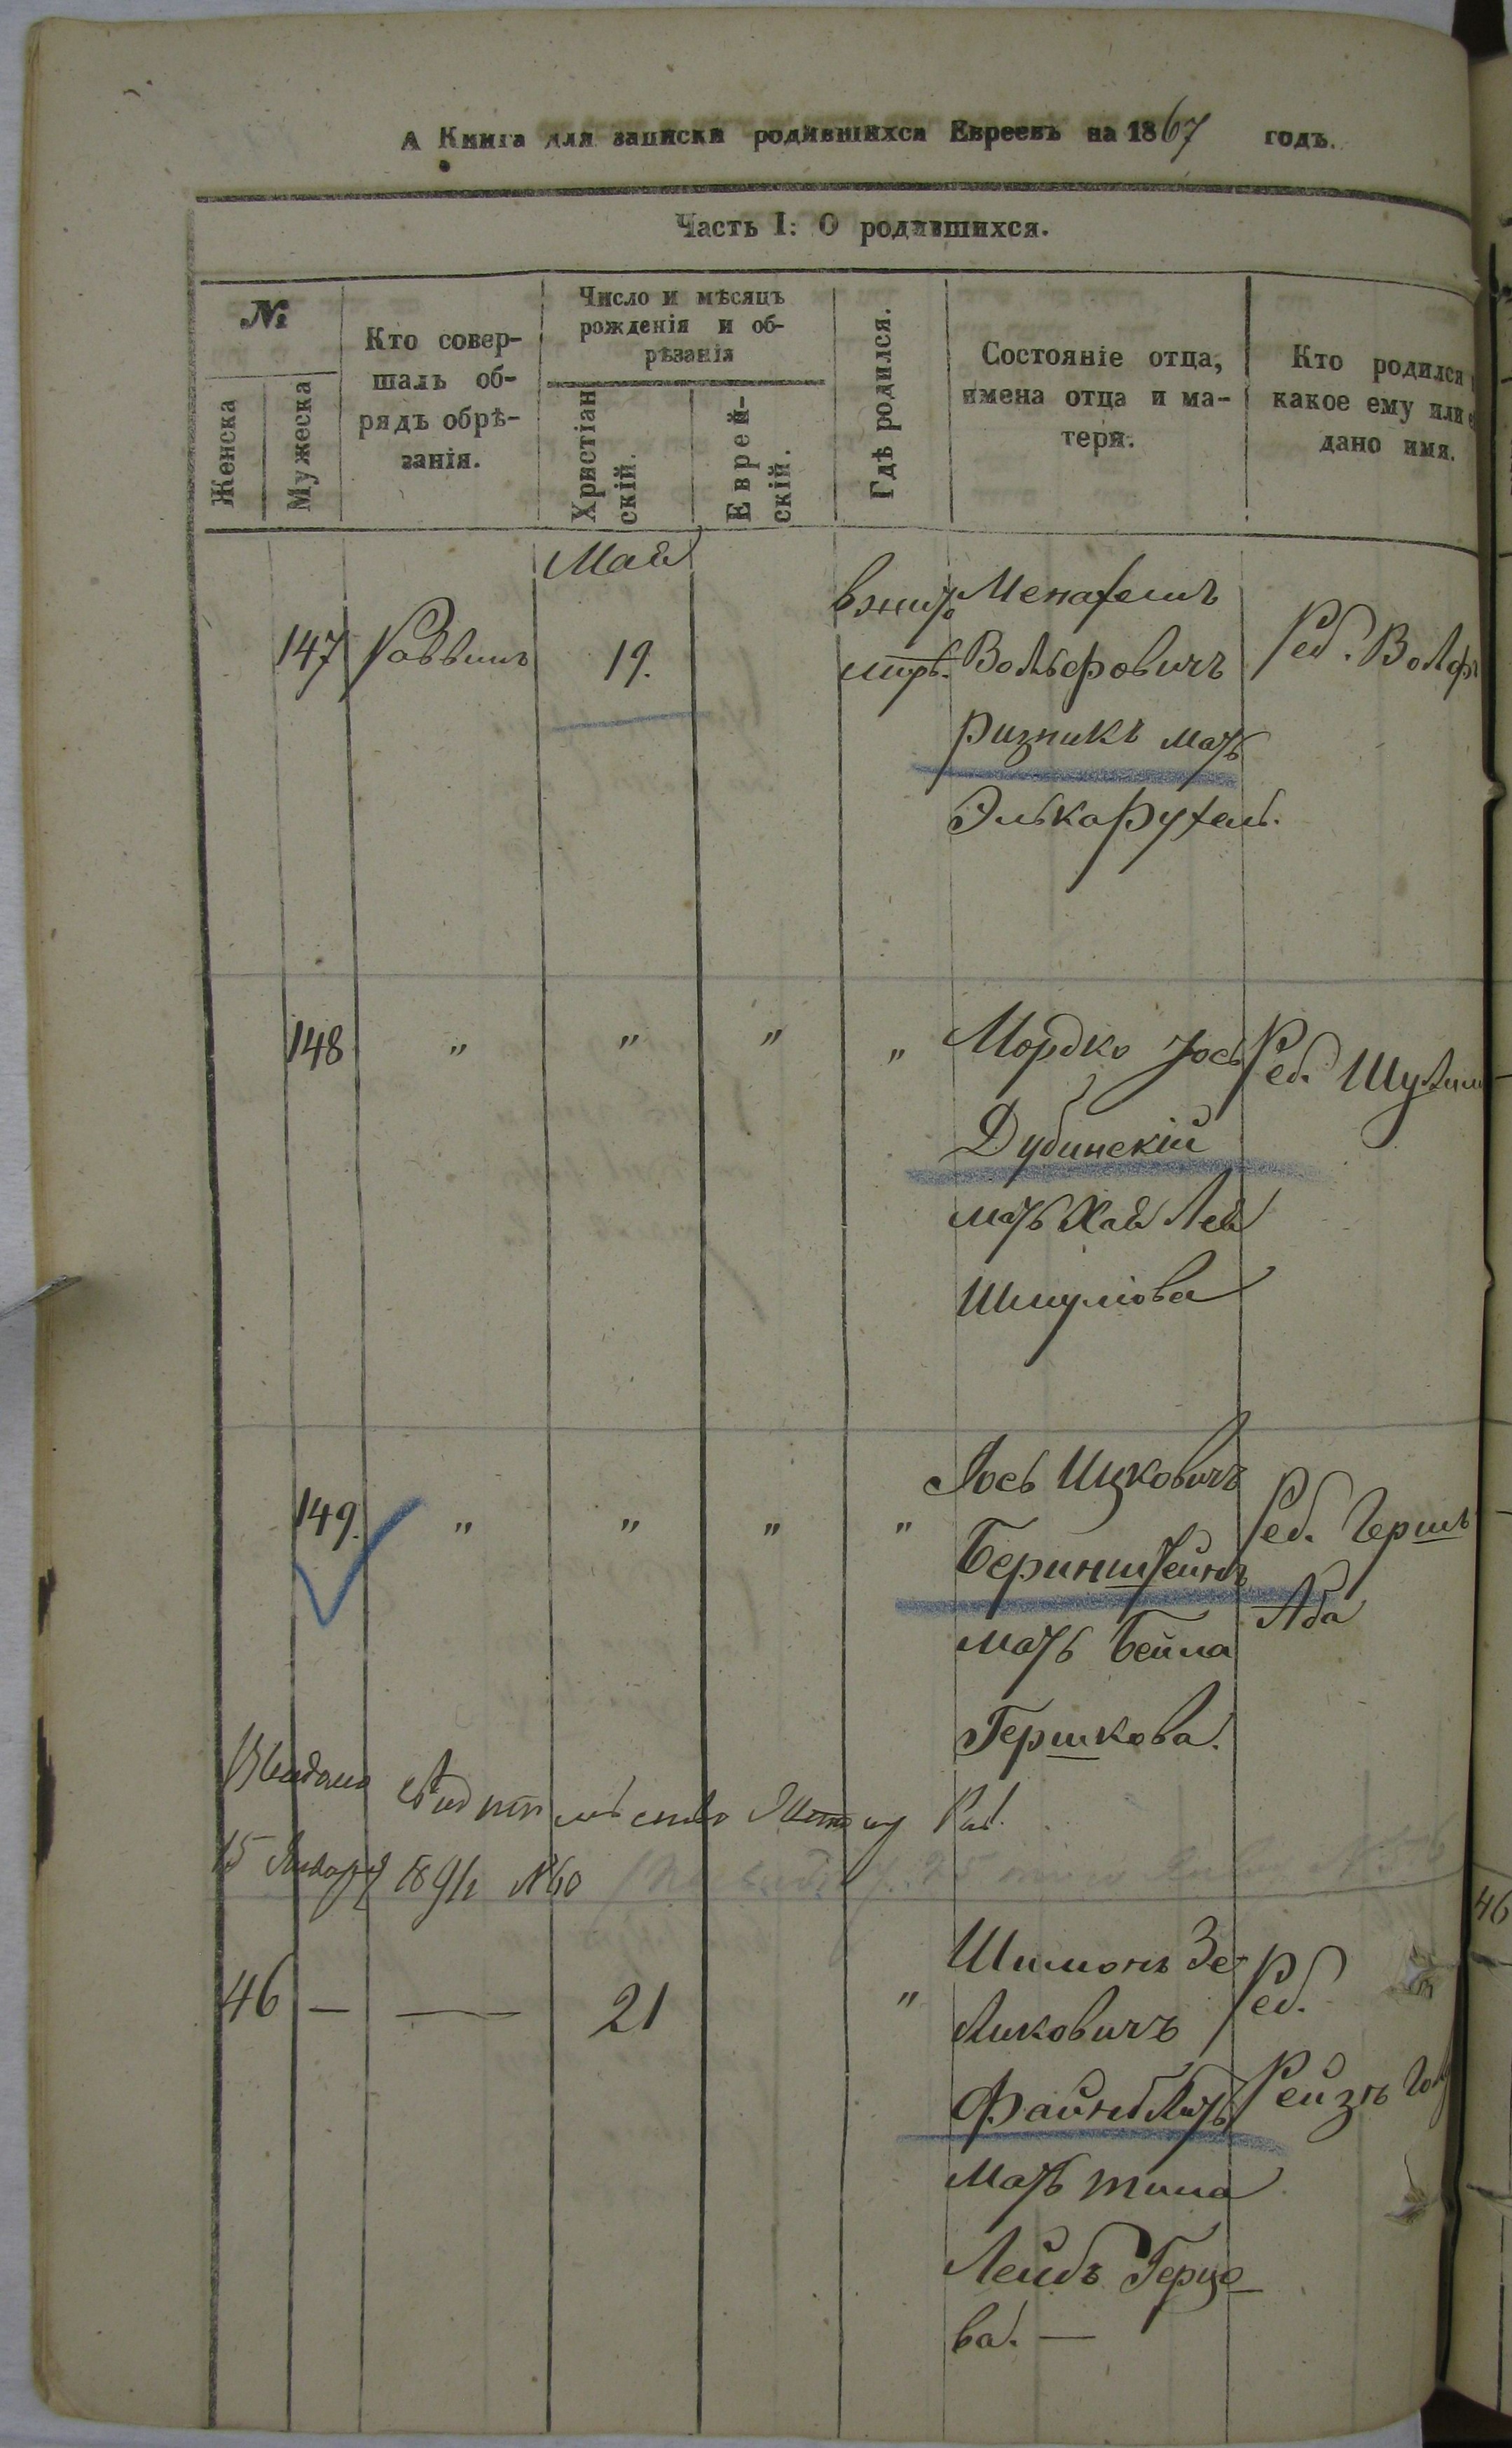 А Книга для записки родившихся Евреевъ на 1867 годъ.
Часть I: О родившихся.
№
Женска
Мужеска
Кто совер-
шалъ об-
рядъ обрѣ-
занія.
Число и мѣсяцъ
рожденія и об-
рѣзанія
Христіан
скій.
Еврей-
скій.
Гдѣ родился.
Состояніе отца,
имена отца и ма-
тери.
Кто родился
какое ему или
дано имя.
Май
147 Раввинъ 19.
Менахемъ
Вольфовичъ
Ризникъ мать
Элька Рухель.
Реб. Волфъ
148 " " " "
Мордко Іось
Дубинскій
мать Хая Лея
Шмулiова
Реб. Шулим
149. " " " "
Іось Ицковичъ
Беринштейнъ
мать Бейла
Гершкова.
Реб. Гершъ
Аба
Выдано свидѣтельство
15 Января 1891 № 60
46 — — 21 "
Шимонъ Зе-
ликовичъ
Файнблитъ
мать
Лейбъ Герцо
ва. —
Реб.
Рейзъ
46